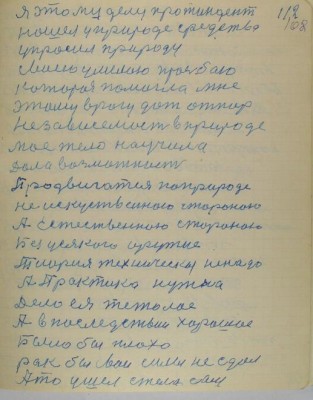 я этому делу протендент
нашел у природе средства
упросил природу
Своею милою прозбаю
которая помогла мне
этаму врагу дат отпор
Независемость в природе
мае тело научила
дала возможность
Продвигатся по природе
не искуственаю стороною
А Естественаю стороною
Без усякого оружие
Теория техническая ненадо
А Практика нужна
Дело ея тежолае
А в последствии харошае
Было бы плохо
бы свои сили не сдал
А то ушел